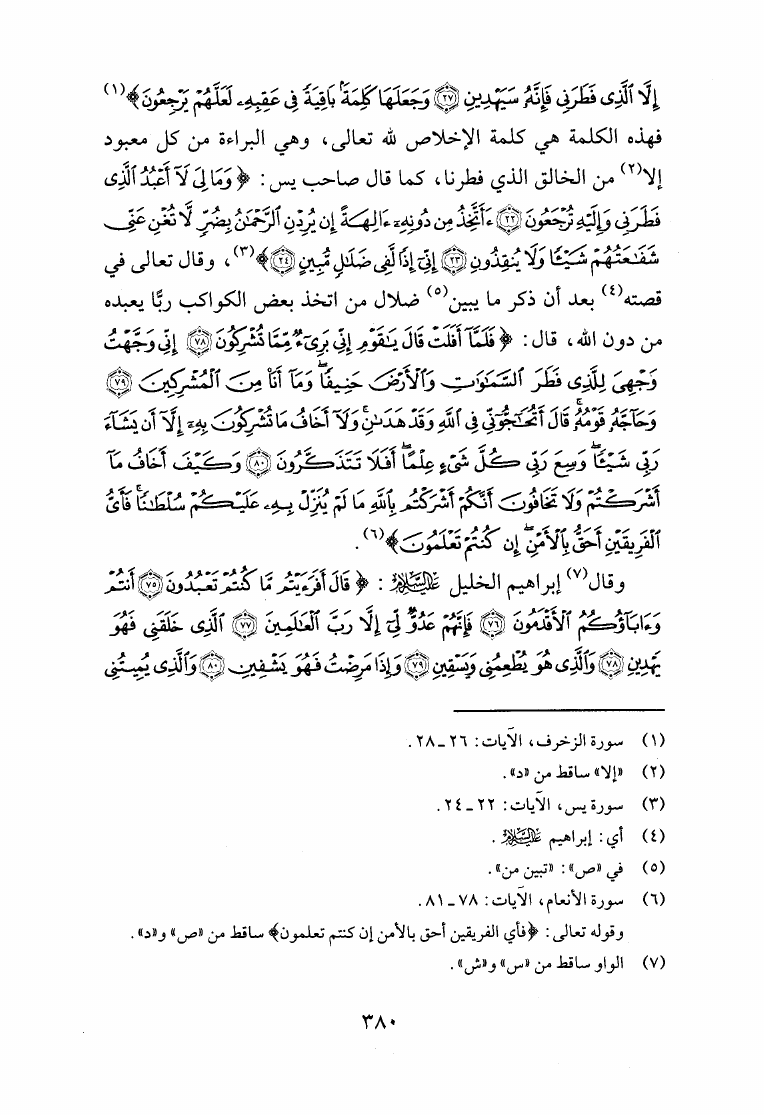 إِلَّا ٱلَّذِى فَطَرَنِى فَإِنَّهُۥ سَيَهْدِينِ ﴿٢٧﴾ وَجَعَلَهَا كَلِمَةًۢ بَاقِيَةً فِى عَقِبِهِۦ لَعَلَّهُمْ يَرْجِعُونَ﴾(١)
فهذه الكلمة هي كلمة الإخلاص لله تعالى، وهي البراءة من كل معبود
إلا(٢) من الخالق الذي فطرنا، كما قال صاحب يس: ﴿وَمَا لِىَ لَآ أَعْبُدُ ٱلَّذِى
فَطَرَنِى وَإِلَيْهِ تُرْجَعُونَ ﴿٢٢﴾ ءَأَتَّخِذُ مِن دُونِهِۦٓ ءَالِهَةً إِن يُرِدْنِ ٱلرَّحْمَٰنُ بِضُرٍّ لَّا تُغْنِ عَنِّى
شَفَٰعَتُهُمْ شَيْـًٔا وَلَا يُنقِذُونِ ﴿٢٣﴾ إِنِّىٓ إِذًا لَّفِى ضَلَٰلٍ مُّبِينٍ ﴿٢٤﴾﴾(٣)، وقال تعالى في
قصته(٤) بعد أن ذكر ما يبين(٥) ضلال من اتخذ بعض الكواكب ربًّا يعبده
من دون الله، قال: ﴿فَلَمَّآ أَفَلَتْ قَالَ يَٰقَوْمِ إِنِّى بَرِىٓءٌ مِّمَّا تُشْرِكُونَ ﴿٧٨﴾ إِنِّى وَجَّهْتُ
وَجْهِىَ لِلَّذِى فَطَرَ ٱلسَّمَٰوَٰتِ وَٱلْأَرْضَ حَنِيفًا وَمَآ أَنَا۠ مِنَ ٱلْمُشْرِكِينَ ﴿٧٩﴾
وَحَآجَّهُۥ قَوْمُهُۥ قَالَ أَتُحَٰٓجُّوٓنِّى فِى ٱللَّهِ وَقَدْ هَدَىٰنِ وَلَآ أَخَافُ مَا تُشْرِكُونَ بِهِۦٓ إِلَّآ أَن يَشَآءَ
رَبِّى شَيْـًٔا وَسِعَ رَبِّى كُلَّ شَىْءٍ عِلْمًا أَفَلَا تَتَذَكَّرُونَ ﴿٨٠﴾ وَكَيْفَ أَخَافُ مَآ
أَشْرَكْتُمْ وَلَا تَخَافُونَ أَنَّكُمْ أَشْرَكْتُم بِٱللَّهِ مَا لَمْ يُنَزِّلْ بِهِۦ عَلَيْكُمْ سُلْطَٰنًا فَأَىُّ
ٱلْفَرِيقَيْنِ أَحَقُّ بِٱلْأَمْنِ إِن كُنتُمْ تَعْلَمُونَ﴾(٦).
وقال(٧) إبراهيم الخليل عليه السلام: ﴿قَالَ أَفَرَءَيْتُم مَّا كُنتُمْ تَعْبُدُونَ ﴿٧٥﴾ أَنتُمْ
وَءَابَآؤُكُمُ ٱلْأَقْدَمُونَ ﴿٧٦﴾ فَإِنَّهُمْ عَدُوٌّ لِّىٓ إِلَّا رَبَّ ٱلْعَٰلَمِينَ ﴿٧٧﴾ ٱلَّذِى خَلَقَنِى فَهُوَ
يَهْدِينِ ﴿٧٨﴾ وَٱلَّذِى هُوَ يُطْعِمُنِى وَيَسْقِينِ ﴿٧٩﴾ وَإِذَا مَرِضْتُ فَهُوَ يَشْفِينِ ﴿٨٠﴾ وَٱلَّذِى يُمِيتُنِى
(١) سورة الزخرف، الآيات: ٢٦ ـ ٢٨.
(٢) «إلا» ساقط من «د».
(٣) سورة يس، الآيات: ٢٢ ـ ٢٤.
(٤) أي: إبراهيم عليه السلام.
(٥) في «ص»: «تبين من».
(٦) سورة الأنعام، الآيات: ٧٨ ـ ٨١.
وقوله تعالى: ﴿فأي الفريقين أحق بالأمن إن كنتم تعلمون﴾ ساقط من «ص» و«د».
(٧) الواو ساقط من «س» و«ش».
٣٨٠